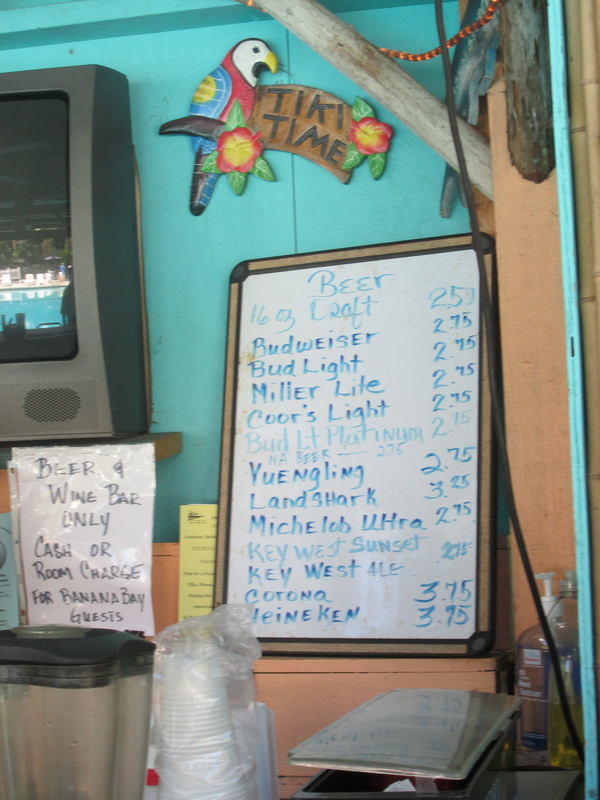 TIKI
TIME
BEER
16 oz Draft 2.50
Budweiser 2.75
Bud Light 2.75
Miller Lite 2.75
Coor's Light 2.75
Bud Lt Platinum 2.75
NA BEER — 2.75
Yuengling 2.75
Landshark 3.25
Michelob Ultra 2.75
Key West Sunset 2.75
Key West Ale
Corona 3.75
Heineken 3.75
BEER &
WINE BAR
ONLY
CASH OR
ROOM CHARGE
FOR BANANA BAY
GUESTS